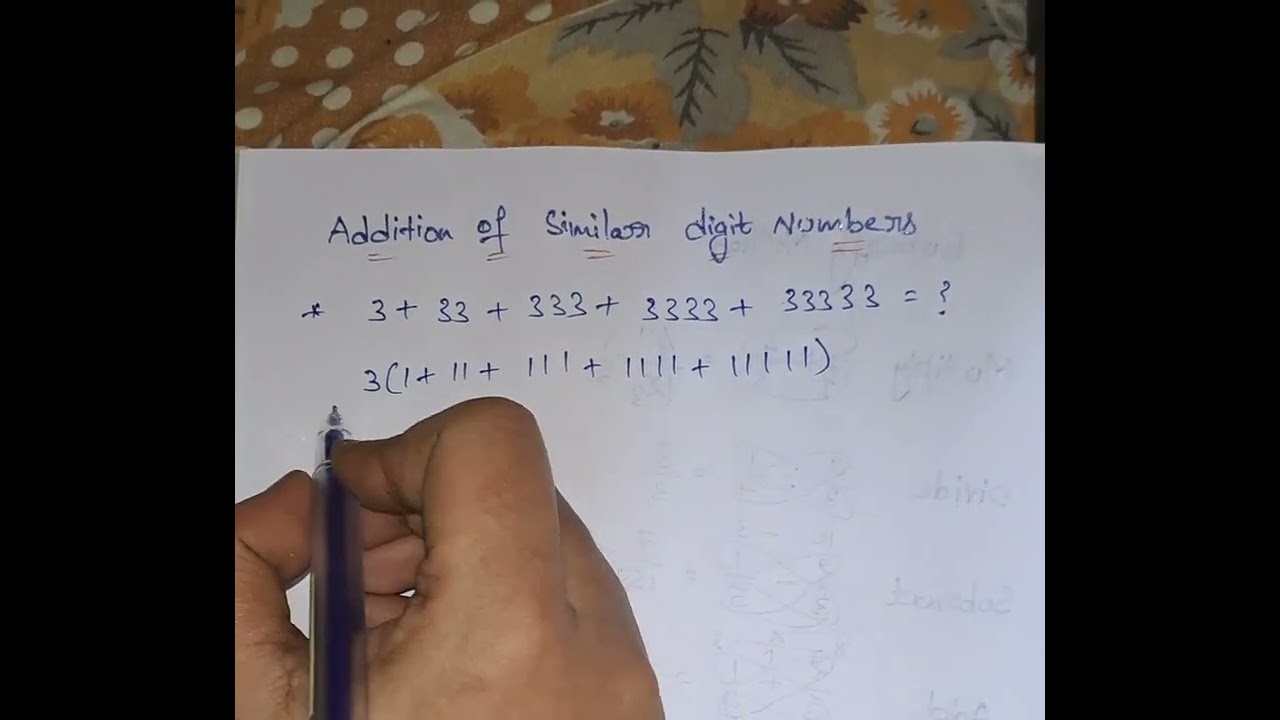 Addition of Similar digit Numbers
* 3 + 33 + 333 + 3333 + 33333 = ?
3(1 + 11 + 111 + 1111 + 11111)